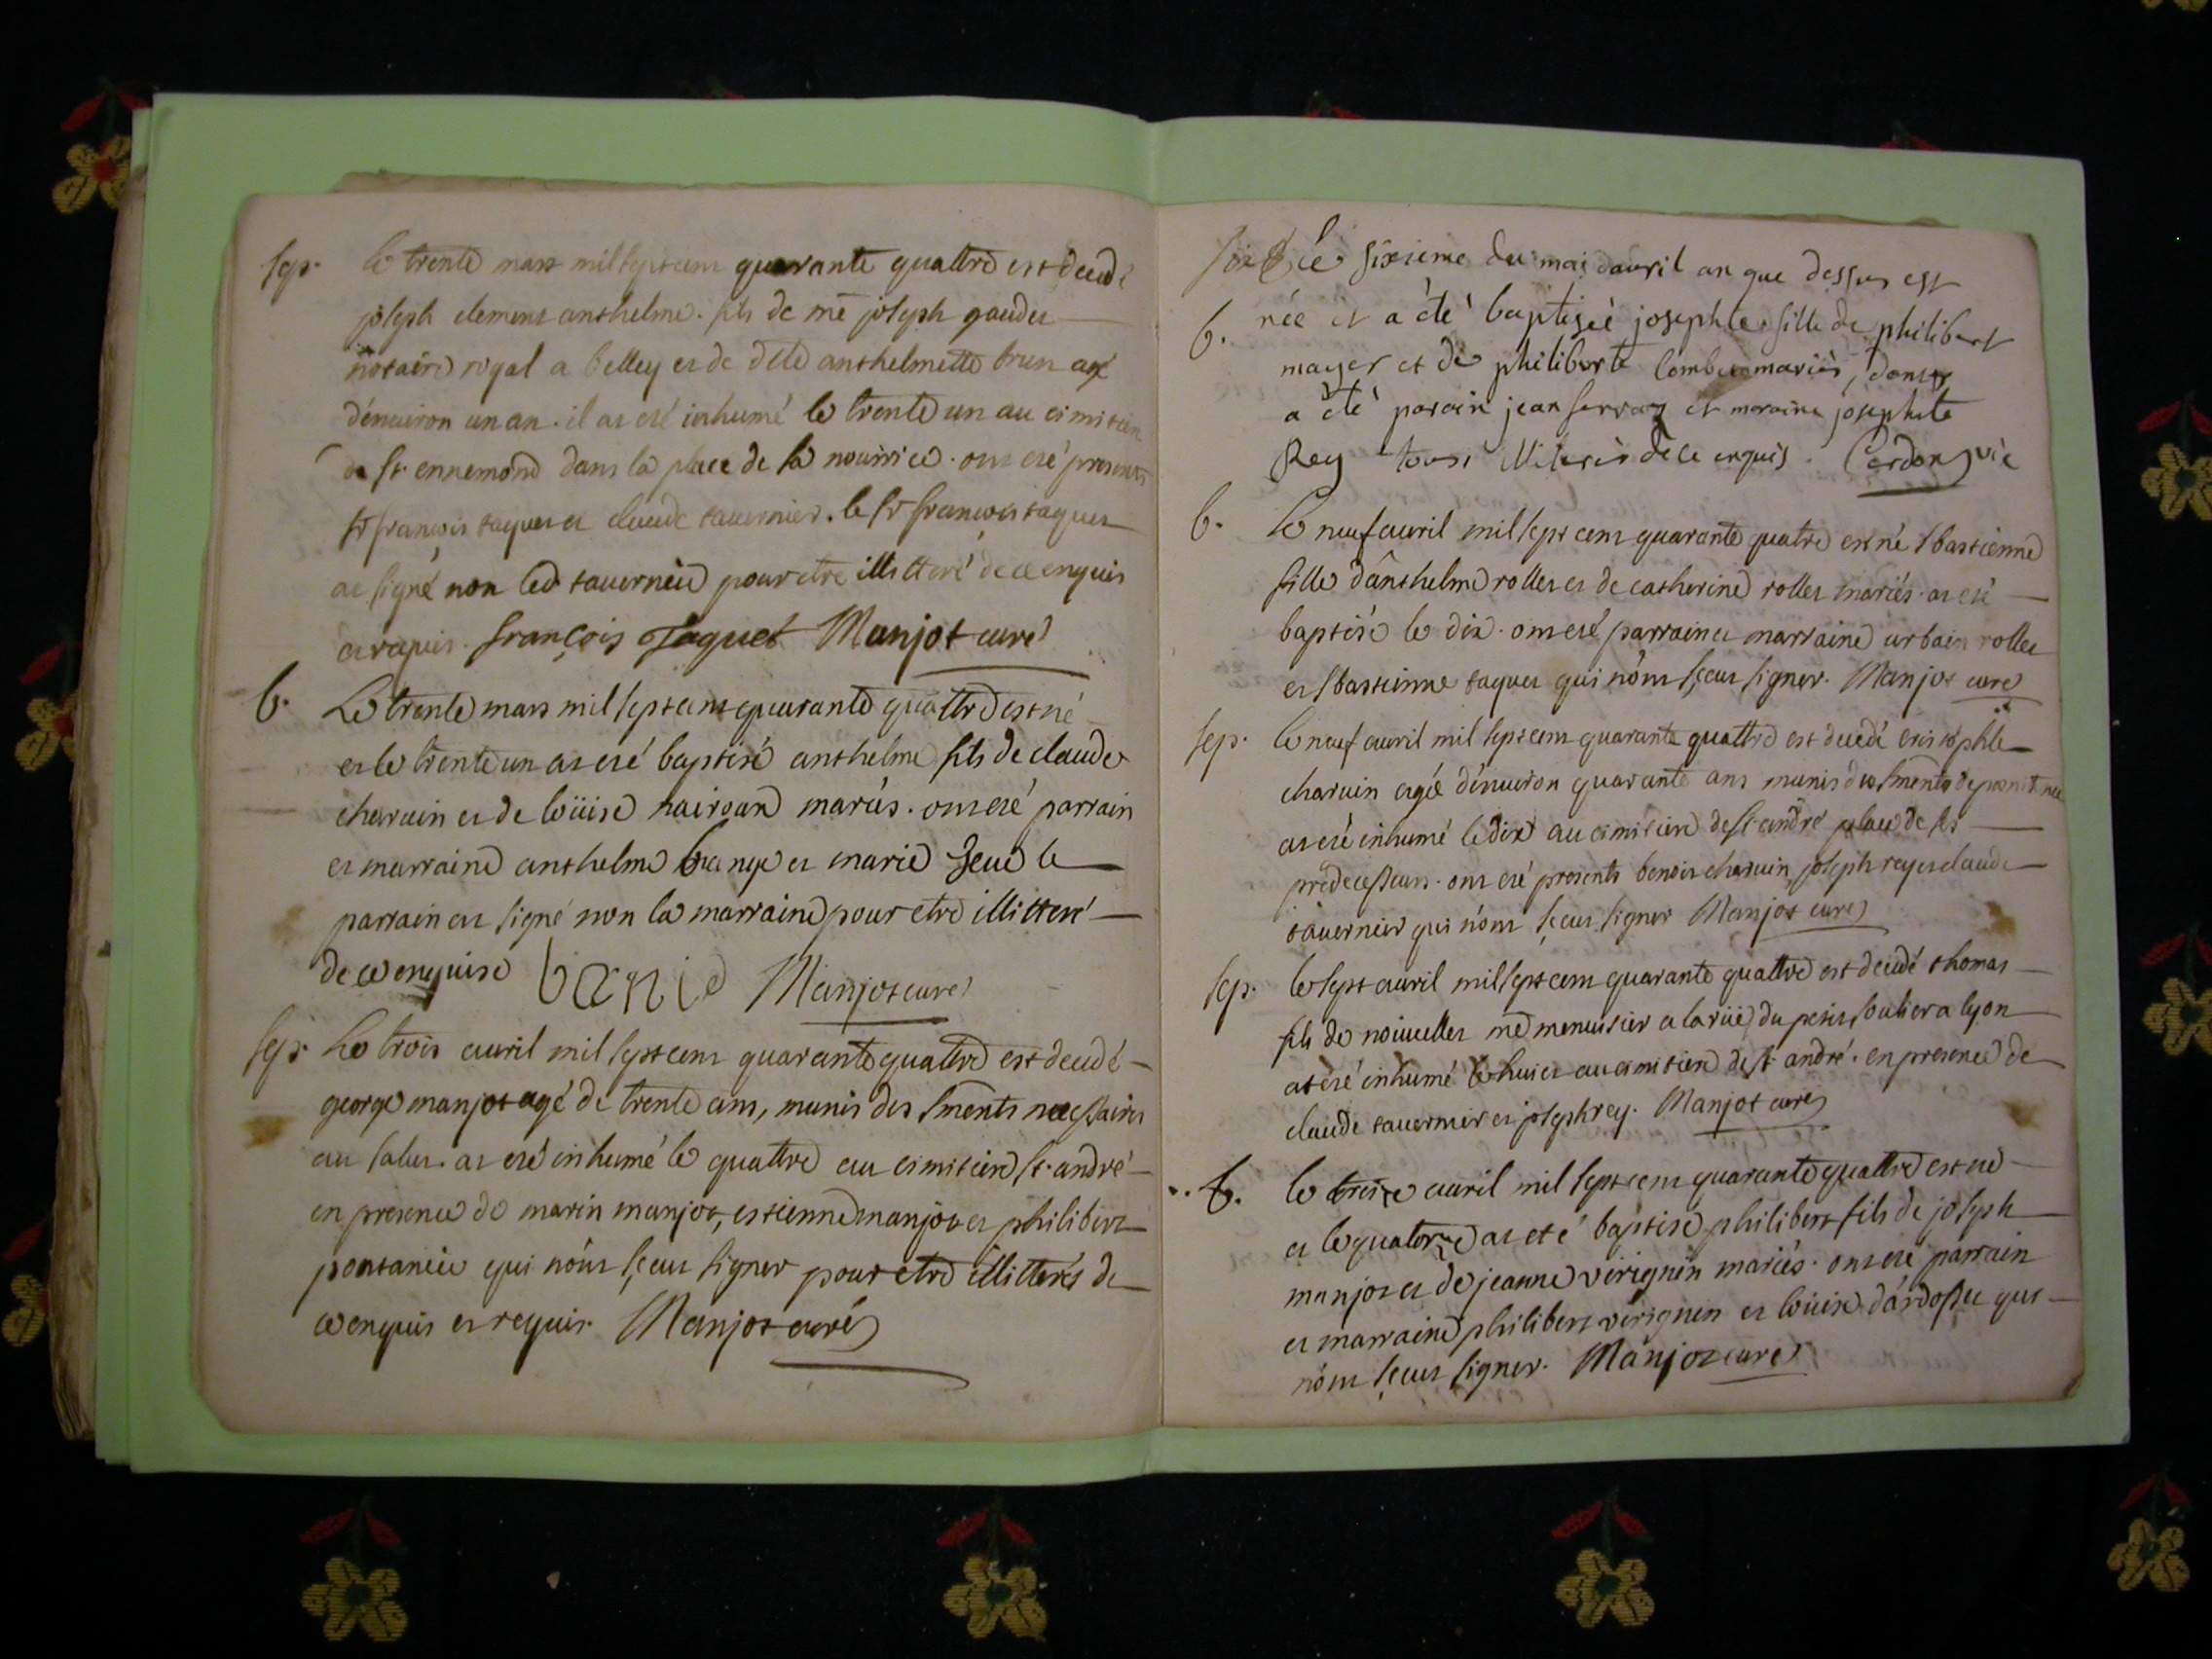 sep. le trente mars mil sept cent quarante quattre est decedé
joseph clement anthelme. fils de me joseph gaudet
notaire royal a belley et de dele anthelmette brun agé
d'environ un an. il at eté inhumé le trente un au cimitiere
de st. ennemond dans la place de sa nourrice. ont eté presents
sr françois taquet et claude tavernier. le sr françois taquet
at signé non led tavernier pour etre illitteré de ce enquis
et requis. françois Taquet Manjot curé
b. Le trente mars mil sept cent quarante quattre est né
et le trente un at eté baptisé anthelme fils de claude
charvin et de loüise mariés. ont eté parrain
et marraine anthelme et marie le
parrain at signé non la marraine pour etre illitteré
de ce enquise Manjot curé
sep. Le trois avril mil sept cent quarante quattre est decedé
george manjot agé de trente ans, munis des sments necessaires
au salut. at eté inhumé le quattre au cimitiere st. andré
en presence de marin manjot, estienne manjot et philibert
qui n'ont sçeut signer pour etre illitterés de
ce enquis et requis. Manjot curé
le sixieme du mai d'avril an que dessus est
b. née et a été baptiseé josephte fille de philibert
mayer et de philiberte mariés, dont
a été parain jean serraz et maraine josephte
Rey tous illiterés de ce enquis. Cordon vic
b. Le neuf avril mil sept cent quarante quatre est né sbastienne
fille d'anthelme rollet et de catherine rollet mariés. at eté
baptisé le dix. ont eté parrain et marraine urbain rollet
et sbastienne taquet qui n'ont sçeut signer. Manjot curé
sep. le neuf avril mil sept cent quarante quattre est decedé
charvin agé d'environ quarante ans munis des sments de penitence
at eté inhumé le dix au cimitiere de st andré place de ses
predecesseurs. ont eté presents benoit charvin, joseph rey et claude
tavernier qui n'ont sçeut signer Manjot curé
sep. le sept avril mil sept cent quarante quattre est decedé thomas
fils de me menuisier a la rüe du petit soulier a lyon
at eté inhumé le huict au cimitiere de st andré. en presence de
claude tavernier et joseph rey. Manjot curé
b. le treize avril mil sept cent quarante quattre est né
et le quatorze at eté baptisé philibert fils de joseph
manjot et de jeanne virignin mariés. ont eté parrain
et marraine philibert virignin et loüise qui
n'ont sçeut signer. Manjot curé